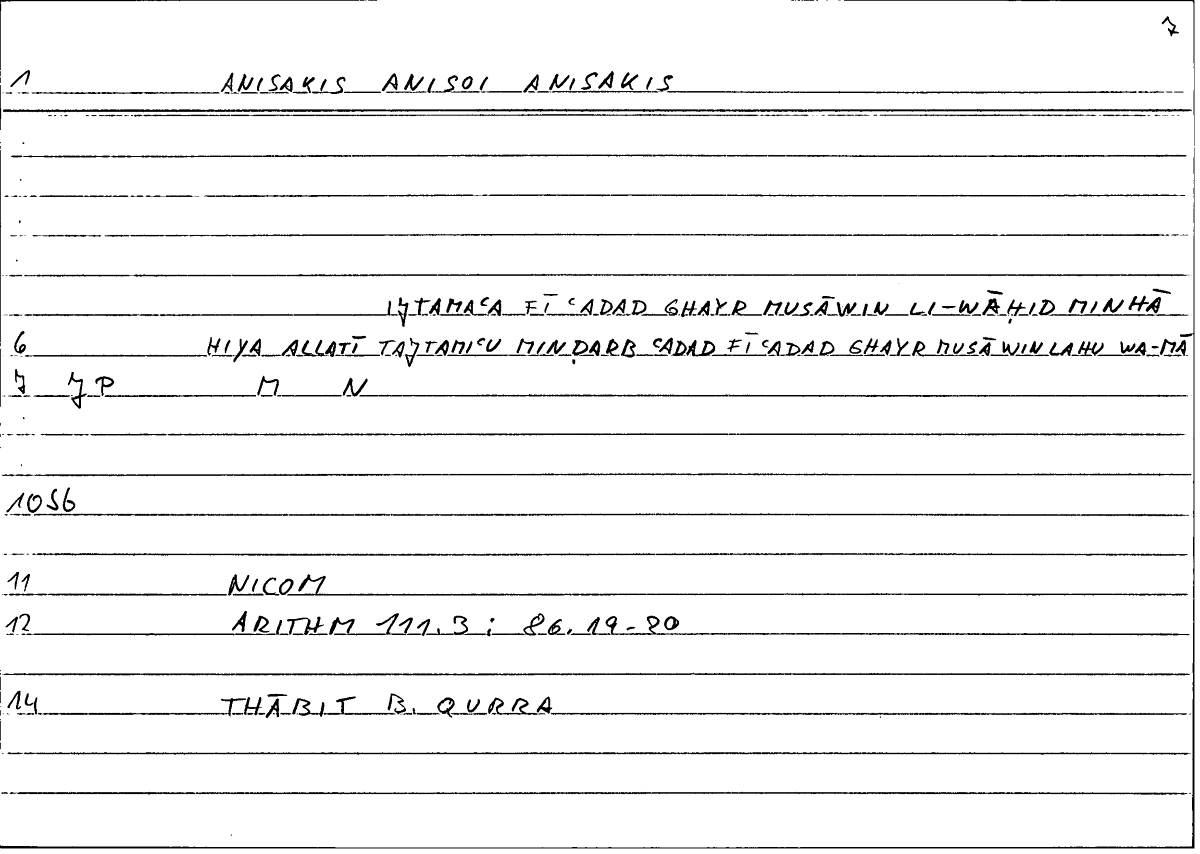 7
1 ANISAKIS ANISOI ANISAKIS
IJTAMAʿA FĪ ʿADAD GHAYR MUSĀWIN LI-WĀḤID MINHĀ
6 HIYA ALLATĪ TAJTAMIʿU MIN ḌARB ʿADAD FĪ ʿADAD GHAYR MUSĀWIN LAHU WA-MĀ
7 JP M N
10 S6
11 NICOM
12 ARITHM 111.3 : 86.19-20
14 THĀBIT B. QURRA